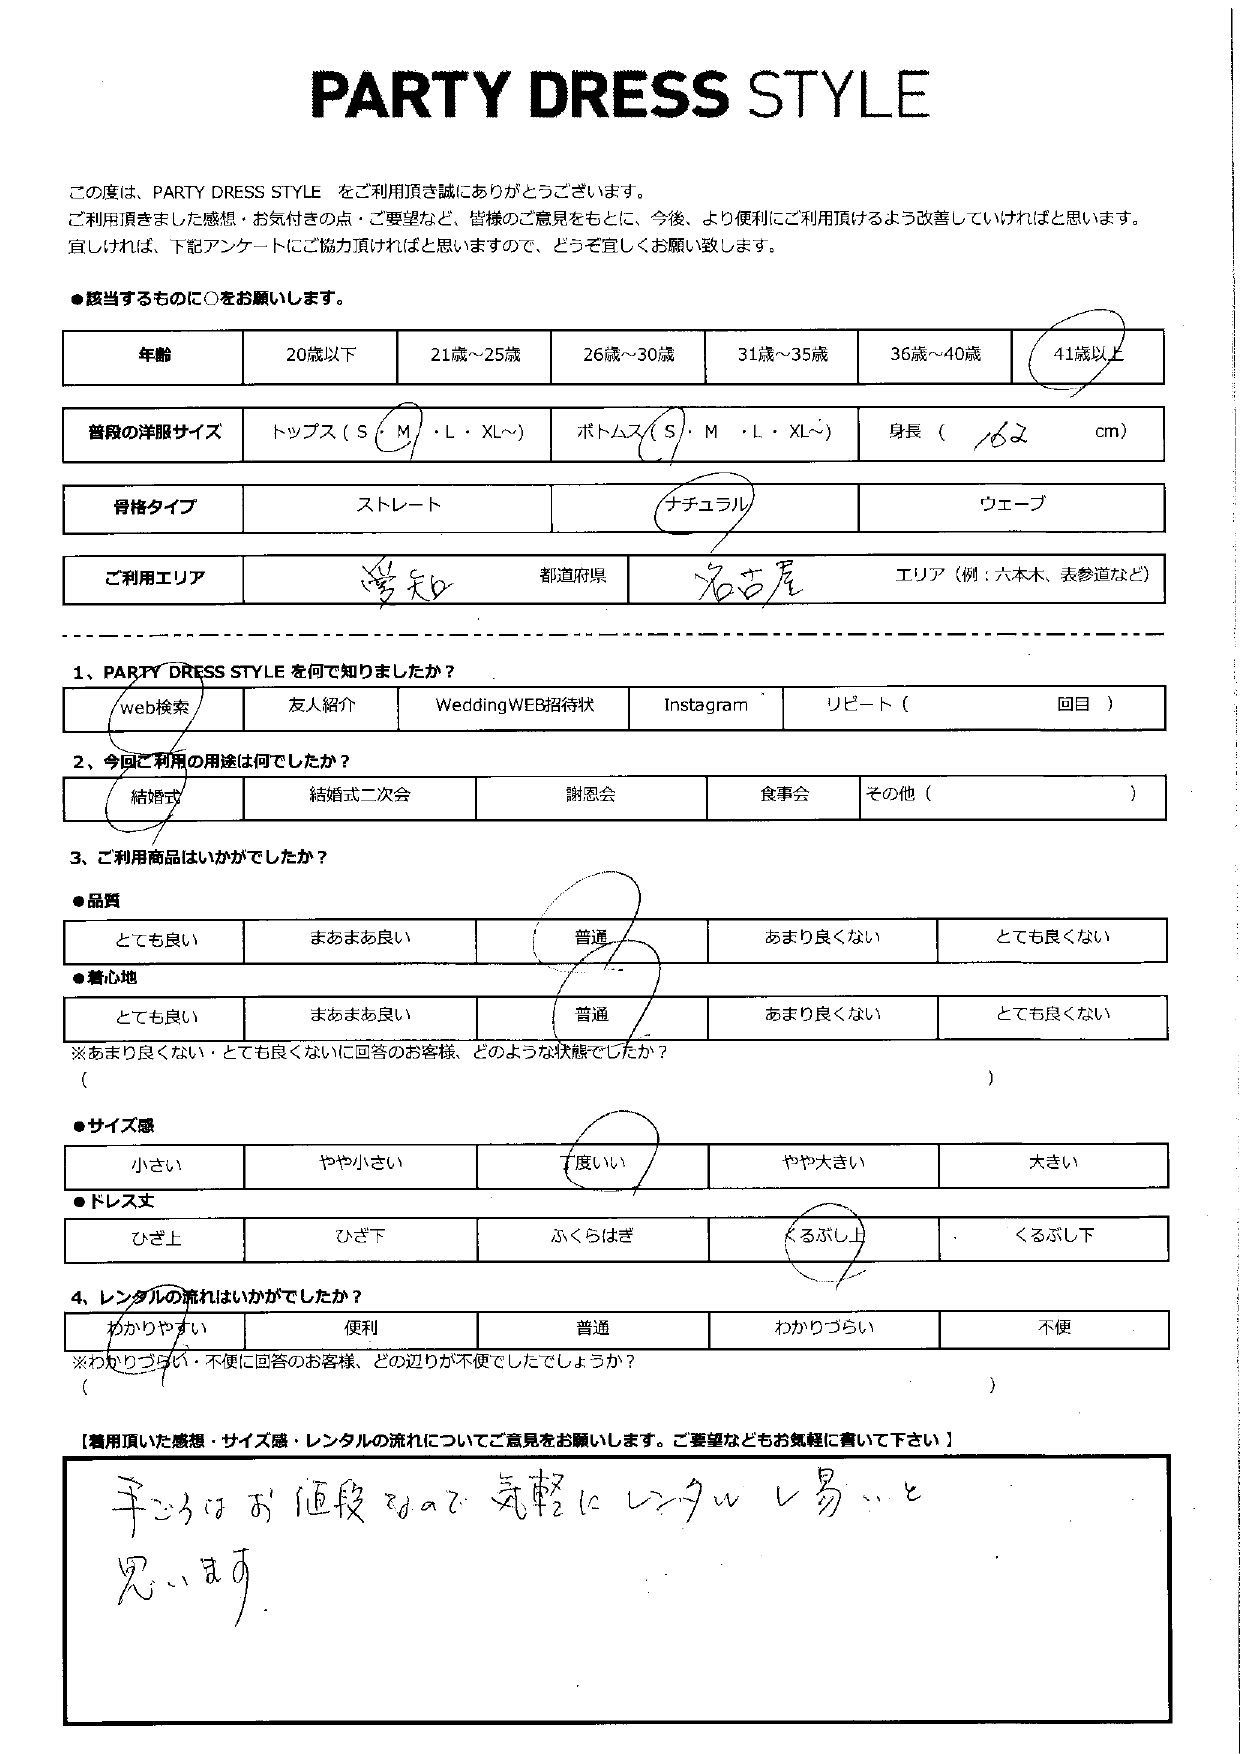 PARTY DRESS STYLE
この度は、PARTY DRESS STYLE をご利用頂き誠にありがとうございます。
ご利用頂きました感想・お気付きの点・ご要望など、皆様のご意見をもとに、今後、より便利にご利用頂けるよう改善していければと思います。
宜しければ、下記アンケートにご協力頂ければと思いますので、どうぞ宜しくお願い致します。
●該当するものに〇をお願いします。
年齢 20歳以下 21歳～25歳 26歳～30歳 31歳～35歳 36歳～40歳 41歳以上
普段の洋服サイズ トップス ( S ・ M ・L ・ XL～) ボトムス ( S ・ M ・L ・ XL～) 身長 ( 162 cm)
骨格タイプ ストレート ナチュラル ウェーブ
ご利用エリア 愛知 都道府県 名古屋 エリア（例：六本木、表参道など）
1、PARTY DRESS STYLE を何で知りましたか？
web検索 友人紹介 WeddingWEB招待状 Instagram リピート（ 回目 ）
2、今回ご利用の用途は何でしたか？
結婚式 結婚式二次会 謝恩会 食事会 その他（ ）
3、ご利用商品はいかがでしたか？
●品質
とても良い まあまあ良い 普通 あまり良くない とても良くない
●着心地
とても良い まあまあ良い 普通 あまり良くない とても良くない
※あまり良くない・とても良くないに回答のお客様、どのような状態でしたか？
( )
●サイズ感
小さい やや小さい 丁度いい やや大きい 大きい
●ドレス丈
ひざ上 ひざ下 ふくらはぎ くるぶし上 くるぶし下
4、レンタルの流れはいかがでしたか？
わかりやすい 便利 普通 わかりづらい 不便
※わかりづらい・不便に回答のお客様、どの辺りが不便でしたでしょうか？
( )
【着用頂いた感想・サイズ感・レンタルの流れについてご意見をお願いします。ご要望などもお気軽に書いて下さい 】
手ごろはお値段なので気軽にレンタルし易いと
思います.